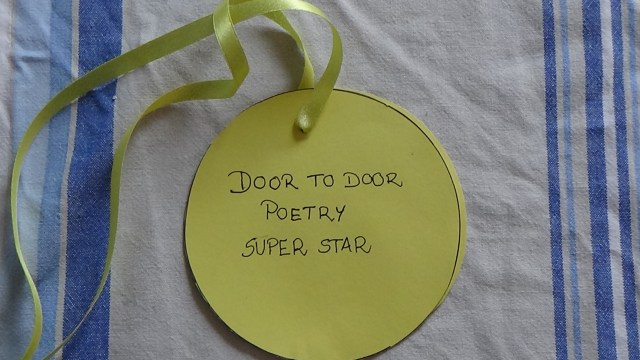 DOOR TO DOOR
POETRY
SUPER STAR